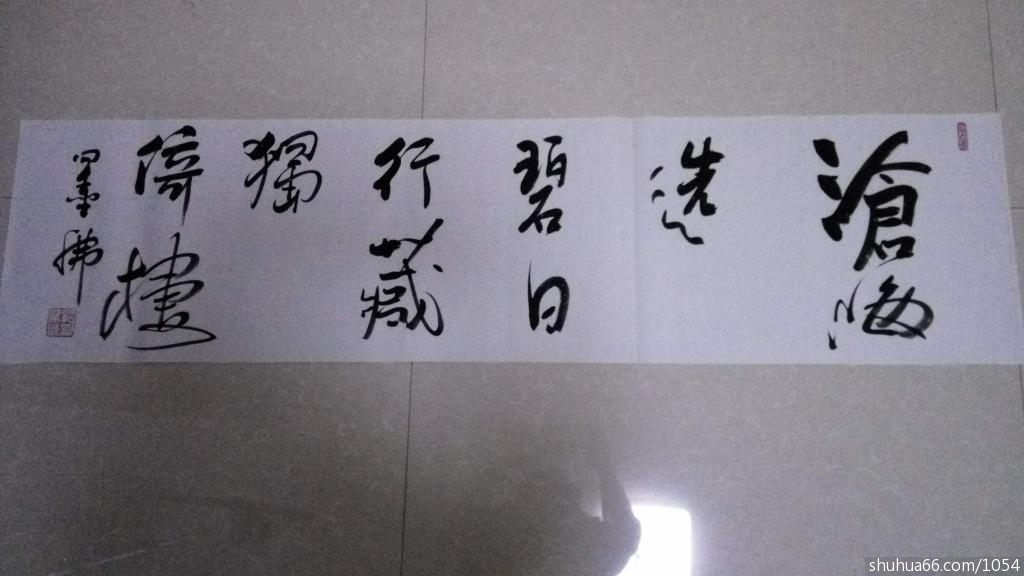 滄海
洗
碧日
行藏
獨
倚樓
墨佛
shuhua66.com/1054